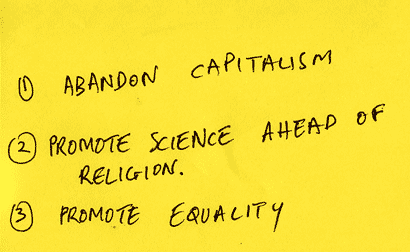 ① ABANDON CAPITALISM
② PROMOTE SCIENCE AHEAD OF
RELIGION.
③ PROMOTE EQUALITY